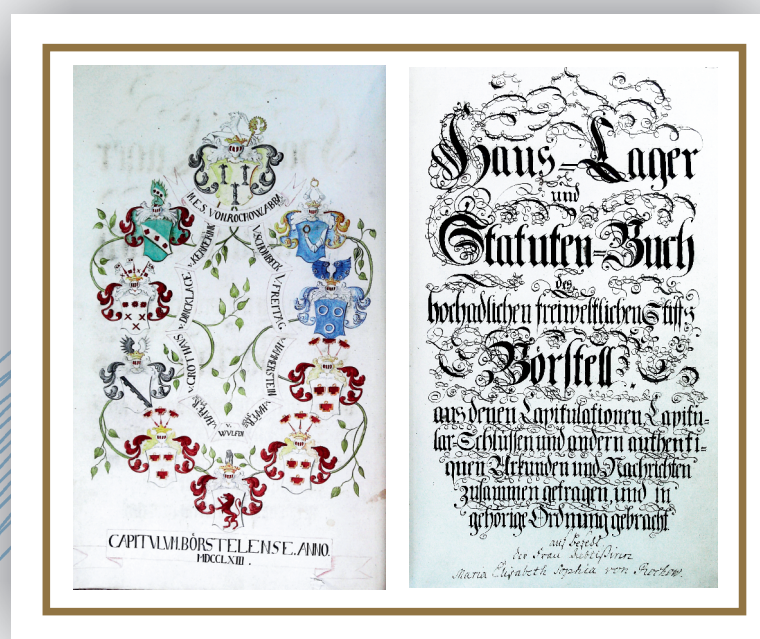 M.E.S. VON ROCHOW ABB
V. SCHORLBECK
V. FREITAG
V. HAMMERSTEIN
V. HAMM
V.
WVLFEN
V. HAMM
V. GROTHAUS
V. DORCKLAGE
V. KERCKERINK
CAPITVLVM. BÖRSTELENSE. ANNO.
MDCCLXIII.
Haus=Lager
und
Statuten=Buch
des
hochadlichen freiweltlichen Stiffs
Börstell.
aus denen Capitulationen, Capitu-
lar-Schlüssen und andern authenti-
quen Urkunden und Nachrichten
zusammen getragen, und in
gehörige Ordnung gebracht.
auf befehl
der Frau Aebtißinn
Maria Elisabeth Sophia von Rochow.